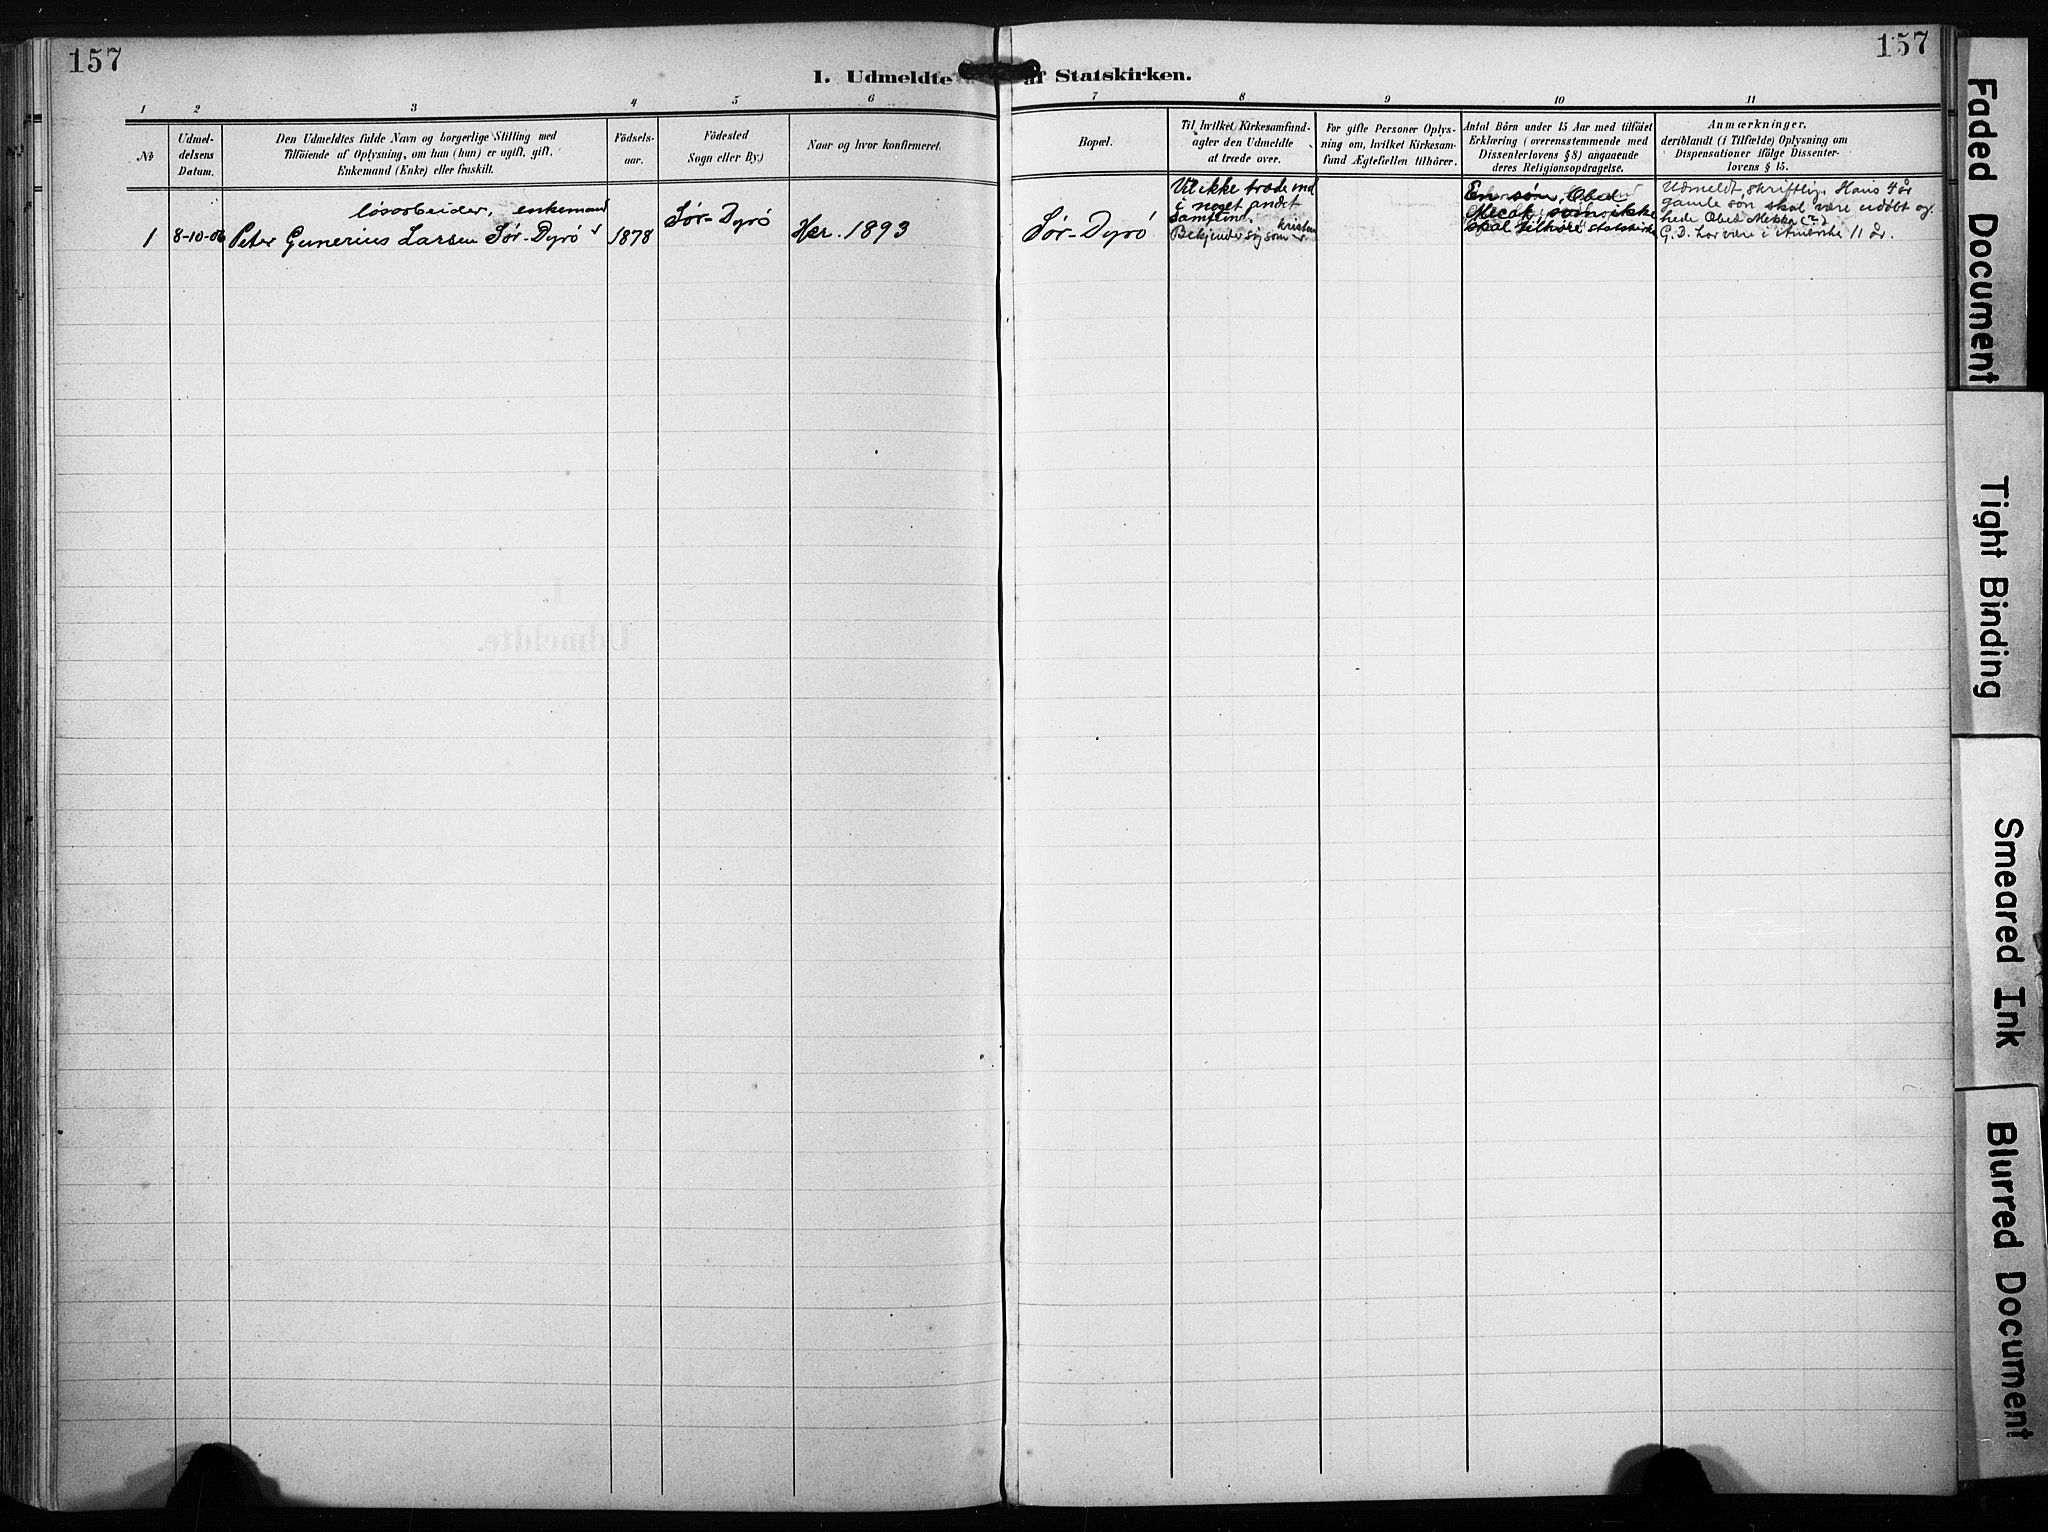 157
157
I. Udmeldte af Statskirken.
1 2 3 4 5 6 7 8 9 10 11
№
Udmel-
delsens
Datum.
Den Udmeldtes fulde Navn og borgerlige Stilling med
Tilföiende af Oplysning, om han (hun) er ugift, gift,
Enkemand (Enke) eller fraskilt.
Födsels-
aar.
Födested
Sogn eller By.)
Naar og hvor konfirmeret.
Bopæl.
Til hvilket Kirkesamfund
agter den Udmeldte
at træde over.
For gifte Personer Oplys-
ning om, hvilket Kirkesam-
fund Ægtefællen tilhörer.
Antal Börn under 15 Aar med tilföiet
Erklæring (overensstemmende med
Dissenterlovens § 8) angaaende
deres Religionsopdragelse.
Anmærkninger,
deriblandt (i Tilfælde) Oplysning om
Dispensationer ifölge Dissenter-
lovens § 15.
1
8-10-06
løsarbeider, enkemand
Peter Gunerius Larsen Sør-Dyrø
1878
Sør-Dyrø
Her. 1893
Sør-Dyrø
Vil ikke træde ind
i noget andet
samfund.
Bekjender sig som kristen
En søn, Obed
som ikke
skal tilhøre statskirken
Udmeldt skriftlig. Hans 4 år
gamle søn skal være udøbt og
hede Obed Mekka (?)
G. D. har være i Amerika 11 år.
I.
Udmeldte.
Faded Document
Tight Binding
Smeared Ink
Blurred Document